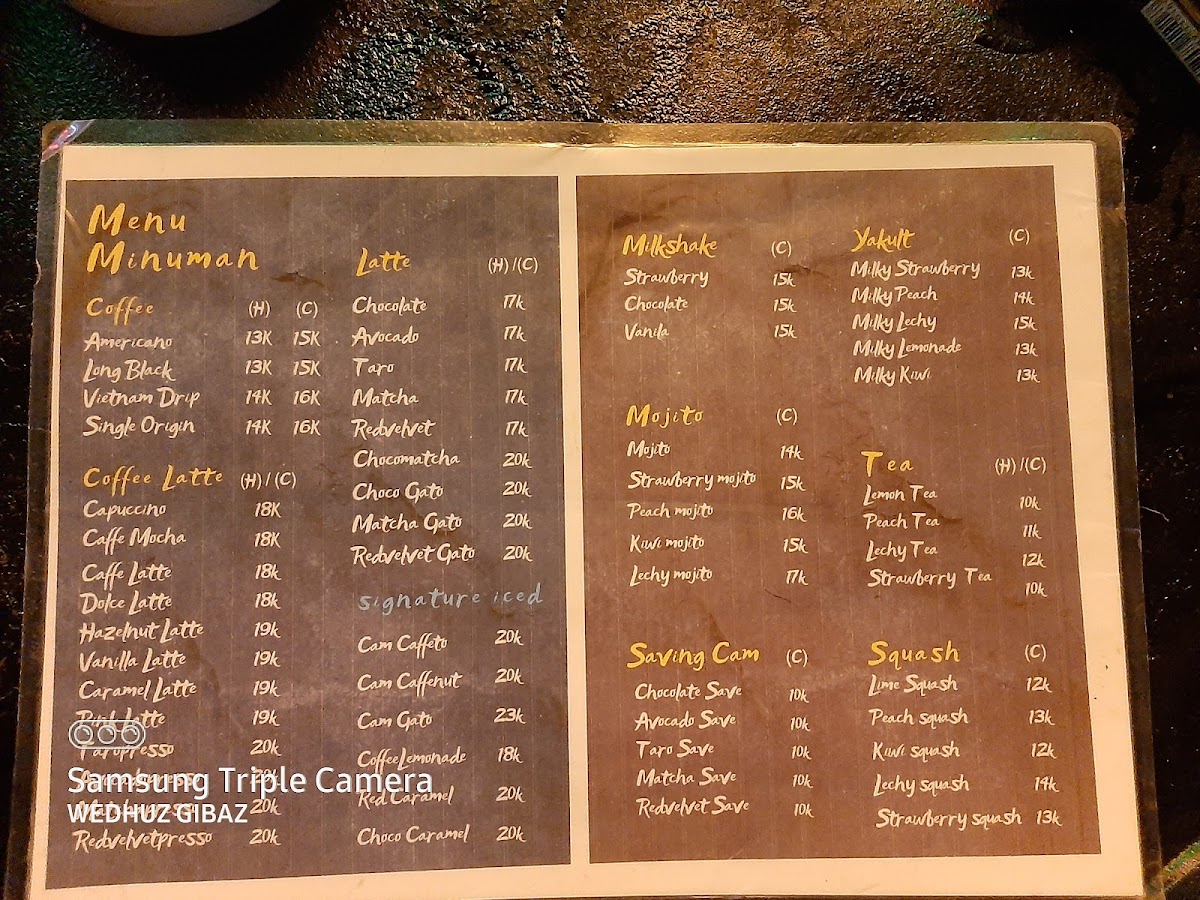 Menu
Minuman
Coffee (H) (C)
Americano 13K 15K
Long Black 13K 15K
Vietnam Drip 14K 16K
Single Origin 14K 16K
Coffee Latte (H)/(C)
Capuccino 18K
Caffe Mocha 18K
Caffe Latte 18k
Dolce Latte 18k
Hazelnut Latte 19k
Vanilla Latte 19k
Caramel Latte 19k
Latte 19k
Taropresso 20k
20k
20k
Redvelvetpresso 20k
Latte (H)/(C)
Chocolate 17k
Avocado 17k
Taro 17k
Matcha 17k
Redvelvet 17k
Chocomatcha 20k
Choco Gato 20k
Matcha Gato 20k
Redvelvet Gato 20k
signature iced
Cam Caffeto 20k
Cam Caffenut 20k
Cam Gato 23k
Coffee Lemonade 18k
Red Caramel 20k
Choco Caramel 20k
Milkshake (C)
Strawberry 15k
Chocolate 15k
Vanila 15k
Mojito (C)
Mojito 14k
Strawberry mojito 15k
Peach mojito 16k
Kiwi mojito 15k
Lechy mojito 17k
Saving Cam (C)
Chocolate Save 10k
Avocado Save 10k
Taro Save 10k
Matcha Save 10k
Redvelvet Save 10k
Yakult (C)
Milky Strawberry 13k
Milky Peach 14k
Milky Lechy 15k
Milky Lemonade 13k
Milky Kiwi 13k
Tea (H)/(C)
Lemon Tea 10k
Peach Tea 11k
Lechy Tea 12k
Strawberry Tea 10k
Squash (C)
Lime Squash 12k
Peach squash 13k
Kiwi squash 12k
Lechy squash 14k
Strawberry squash 13k
Samsung Triple Camera
WEDHUZ GIBAZ